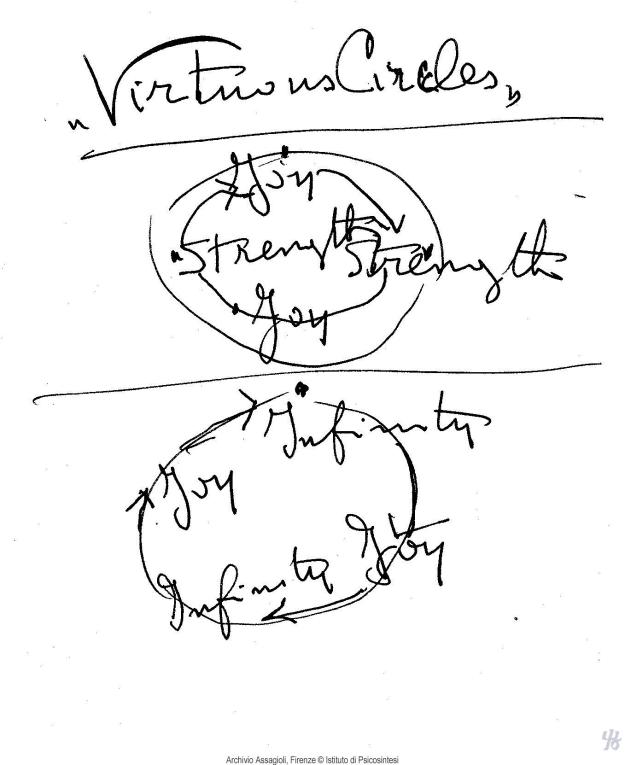 "Virtuous Circles"
Joy
Strength Strength
Joy
Infinity
Joy
Joy
Infinity
Archivio Assagioli, Firenze © Istituto di Psicosintesi